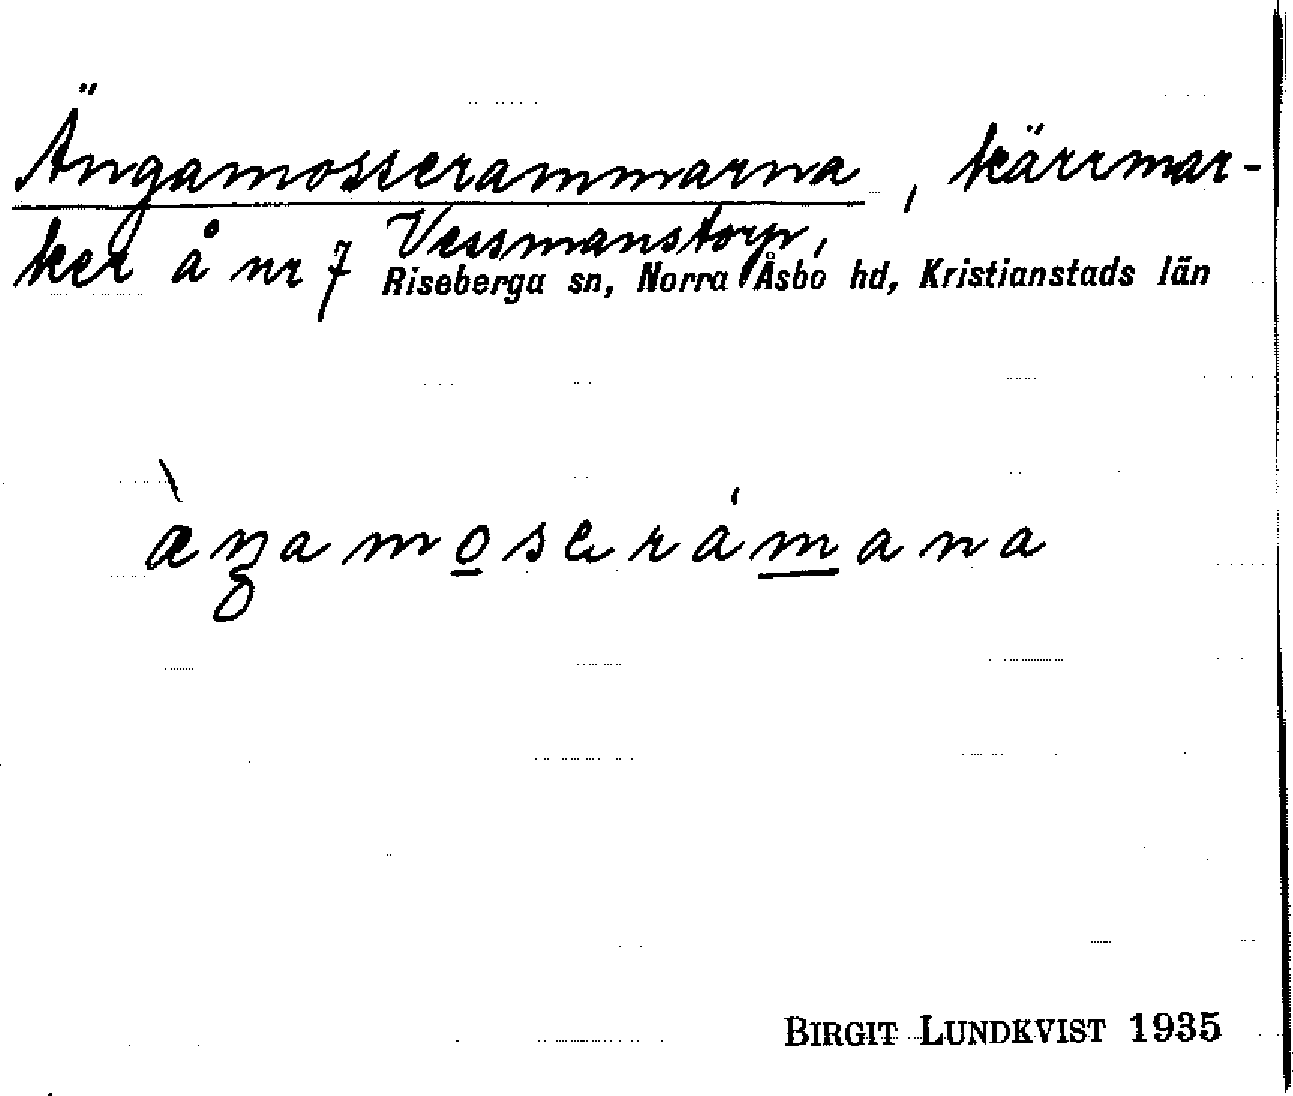 Ängamosserammarna, kärrmar-
ker å nr 7 Vessmanstorp,
Riseberga sn, Norra Åsbo hd, Kristianstads län
àŋamo̲serám̲ana
BIRGIT LUNDKVIST 1935